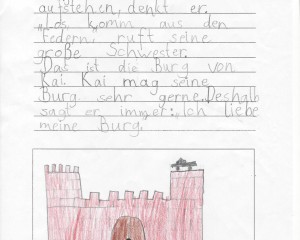 aufstehen, denkt er.
"Los komm, aus den
Federn", ruft seine
große Schwester.
Das ist die Burg von
Kai. Kai mag seine
Burg sehr gerne. Deshalb
sagt er immer: Ich liebe
meine Burg.